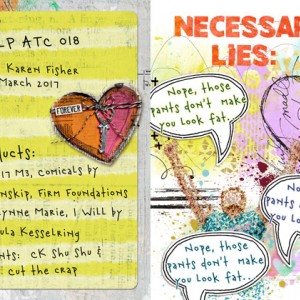 LP ATC 018
Karen Fisher
March 2017
FOREVER
ducts:
17 M3, Comicals by
nship, Firm Foundations
ynne Marie, I Will by
ula Kesselring
nts: CK Shu Shu &
cut the crap
NECESSAR
LIES:
Nope, those
pants don't make
you look fat..
made
No
pants
you
Nope, those
pants don't make
you look fat..